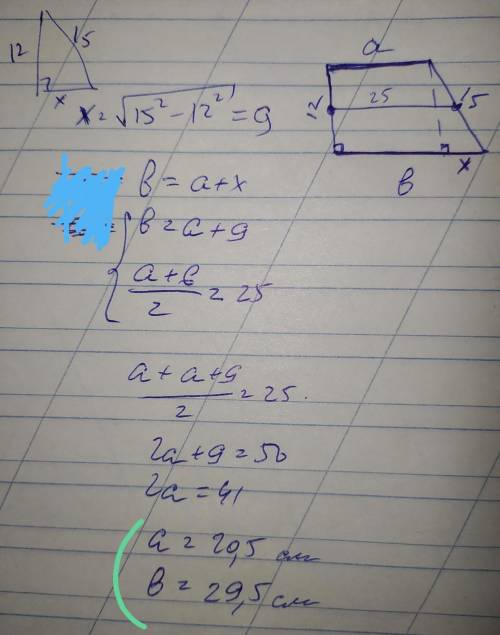 12 15
x
x = √15² - 12² = 9
a
12 25 15
x
в
в = a + x
в = a + 9
a + в
2 = 25
a + a + 9
2 = 25.
2a + 9 = 50
2a = 41
a = 20,5 см
в = 29,5 см